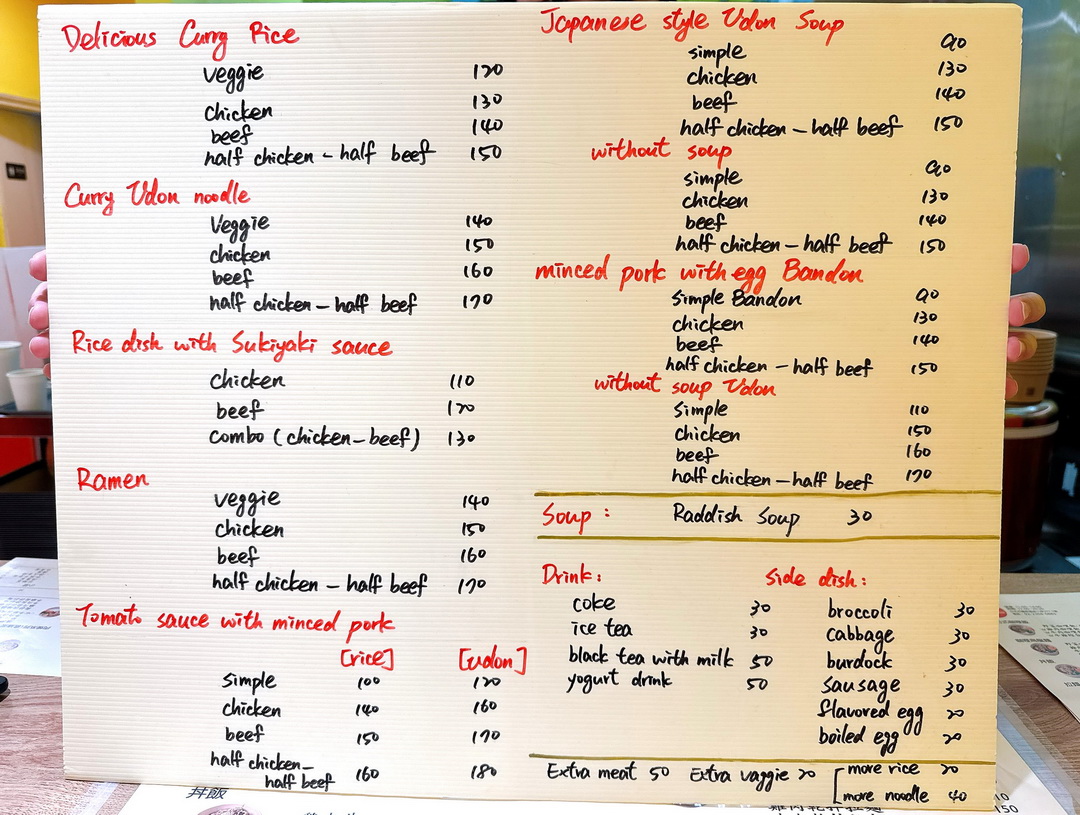 Delicious Curry Rice
veggie 120
chicken 130
beef 140
half chicken - half beef 150
Curry Udon noodle
Veggie 140
chicken 150
beef 160
half chicken - half beef 170
Rice dish with Sukiyaki sauce
chicken 110
beef 120
combo (chicken-beef) 130
Ramen
veggie 140
chicken 150
beef 160
half chicken - half beef 170
Tomato sauce with minced pork
[rice] [udon]
simple 100 120
chicken 140 160
beef 150 170
half chicken-
half beef 160 180
Japanese style Udon Soup
simple 90
chicken 130
beef 140
half chicken - half beef 150
without soup
simple 90
chicken 130
beef 140
half chicken - half beef 150
minced pork with egg Bandon
simple Bandon 90
chicken 130
beef 140
half chicken - half beef 150
without soup Udon
simple 110
chicken 150
beef 160
half chicken - half beef 170
Soup: Raddish Soup 30
Drink:
coke 30
ice tea 30
black tea with milk 50
yogurt drink 50
Side dish:
broccoli 30
cabbage 30
burdock 30
Sausage 30
flavored egg 20
boiled egg 20
Extra meat 50 Extra vaggie 20 [more rice 20
more noodle 40
150